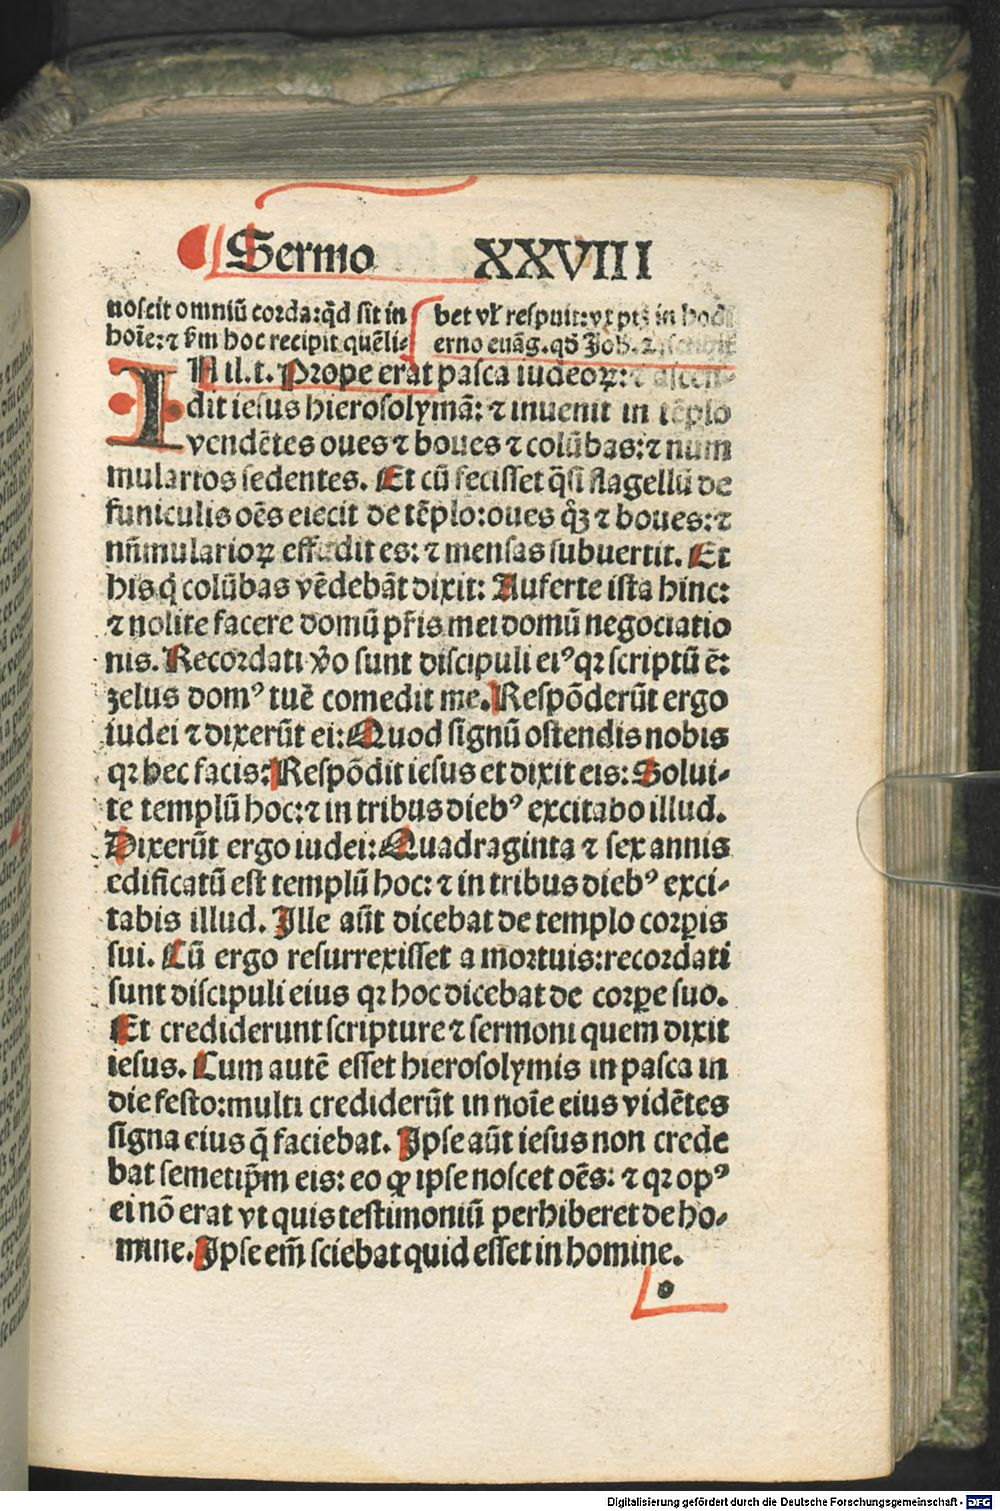 Sermo XXVIII
noscit omniū corda: qđ sit in
hoīe: ⁊ ẜm hoc recipit quēli⸗
bet vł respuit: vt ptꝫ in hodi
erno euāg. qđ Joh. 2. scribit̄
IN il. t. Prope erat pasca iudeoꝝ: ⁊ ascen⸗
dit iesus hierosolymā: ⁊ inuenit in tēplo
vendētes oues ⁊ boues ⁊ colūbas: ⁊ num
mularios sedentes. Et cū fecisset q̄si flagellū de
funiculis oēs eiecit de tēplo: oues qꝫ ⁊ boues: ⁊
nūmularioꝝ effudit es: ⁊ mensas subuertit. Et
his q̇ colūbas vēdebāt dixit: Auferte ista hinc:
⁊ nolite facere domū pr̄is mei domū negociatio
nis. Recordati v̄o sunt discipuli eiꝰ qꝛ scriptū ē:
zelus domꝰ tuē comedit me. Respōderūt ergo
iudei ⁊ dixerūt ei: Quod signū ostendis nobis
qꝛ hec facis: Respōdit iesus et dixit eis: Solui⸗
te templū hoc: ⁊ in tribus diebꝰ excitabo illud.
Dixerūt ergo iudei: Quadraginta ⁊ sex annis
edificatū est templū hoc: ⁊ in tribus diebꝰ exci⸗
tabis illud. Ille aūt dicebat de templo corꝑis
sui. Cū ergo resurrexisset a mortuis: recordati
sunt discipuli eius qꝛ hoc dicebat de corꝑe suo.
Et crediderunt scripture ⁊ sermoni quem dixit
iesus. Cum autē esset hierosolymis in pasca in
die festo: multi crediderūt in noīe eius vidētes
signa eius q̄ faciebat. Ipse aūt iesus non crede
bat semetip̄m eis: eo ꝙ ipse noscet oēs: ⁊ qꝛ opꝰ
ei nō erat vt quis testimoniū perhiberet de ho⸗
mine. Ipse em̄ sciebat quid esset in homine.
o
Digitalisierung gefördert durch die Deutsche Forschungsgemeinschaft - DFG